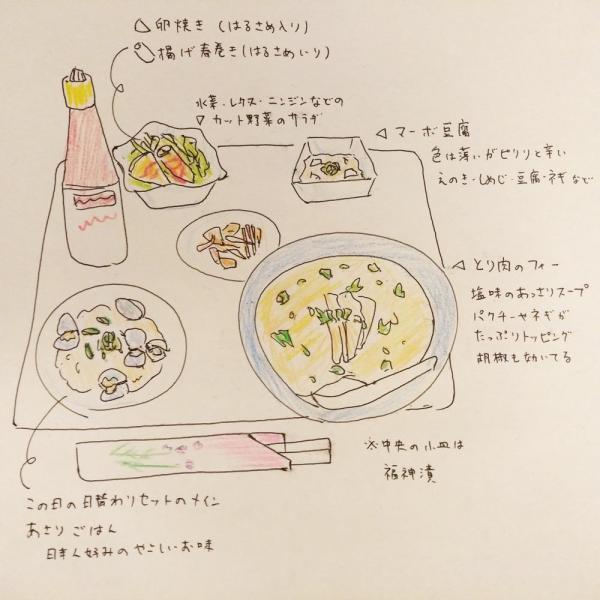 卵焼き (はるさめ入り)
揚げ春巻き(はるさめいり)
水菜・レタス・ニンジンなどの
カット野菜のサラダ
マーボ豆腐
色は薄いがピリリと辛い
えのき・しめじ・豆腐・ネギなど
とり肉のフォー
塩味のあっさりスープ
パクチーやネギが
たっぷりトッピング
胡椒も効いてる
※中央の小皿は
福神漬
この日の日替わりセットのメイン
あさりごはん
日本人好みのやさしいお味